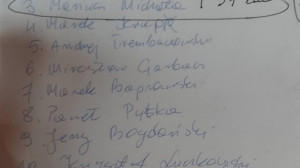 3. Mariusz Michałka
4. Marek
5. Andrzej Trembaczowski
6. Mirosław Garbacz
7. Marek Bagnowski
8. Paweł Pyłka
9. Jerzy Bogdański
10. Krzysztof